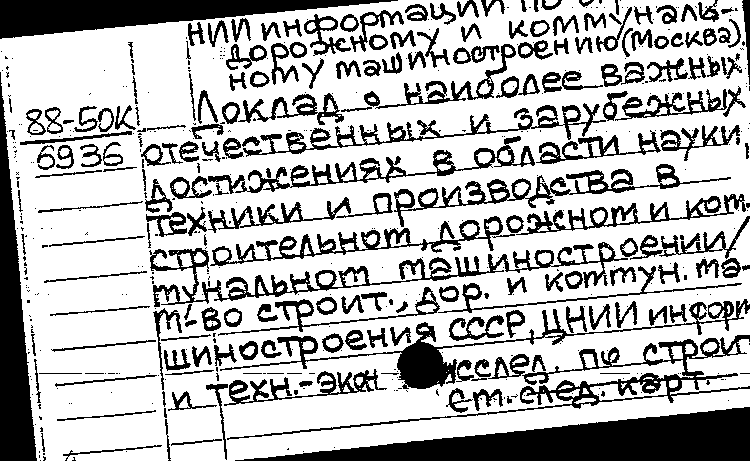 НИИ информации по
дорожному и коммуналь-
ному машиностроению (Москва).
Доклад о наиболее важных
88-50К
отечественных и зарубежных
6936
достижениях в области науки,
техники и производства в
строительном, дорожном и ком-
мунальном машиностроении/
М-во строит., дор. и коммун. ма-
шиностроения СССР, ЦНИИ информ
и техн.-экон исслед. по строит
см. след. карт.